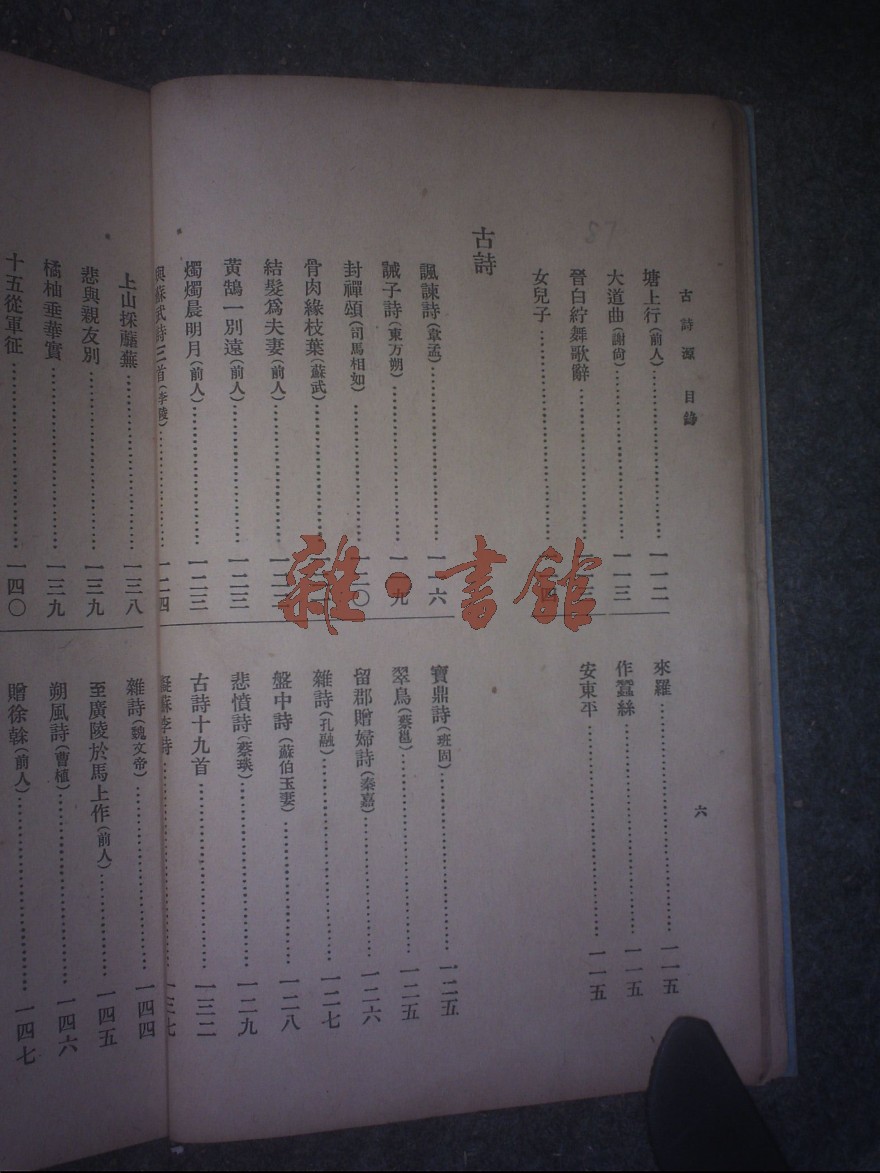 古詩源 目錄
六
塘上行(前人)……一一二
大道曲(謝尙)……一一三
晉白紵舞歌辭……
女兒子……
來羅……一一五
作蠶絲……一一五
安東平……一一五
古詩
諷諫詩(韋孟)……一一六
誡子詩(東方朔)……一一九
封禪頌(司馬相如)……一二〇
骨肉緣枝葉(蘇武)……
結髮爲夫妻(前人)……
黃鵠一別遠(前人)……一二三
燭燭晨明月(前人)……一二三
與蘇武詩三首(李陵)……一二四
寶鼎詩(班固)……一二五
翠鳥(蔡邕)……一二五
留郡贈婦詩(秦嘉)……一二六
雜詩(孔融)……一二七
盤中詩(蘇伯玉妻)……一二八
悲憤詩(蔡琰)……一二九
古詩十九首……一三二
擬蘇李詩……一三七
上山採蘼蕪……一三八
悲與親友別……一三九
橘柚垂華實……一三九
十五從軍征……一四〇
雜詩(魏文帝)……一四四
至廣陵於馬上作(前人)……一四五
朔風詩(曹植)……一四六
贈徐榦(前人)……一四七
雜·書館